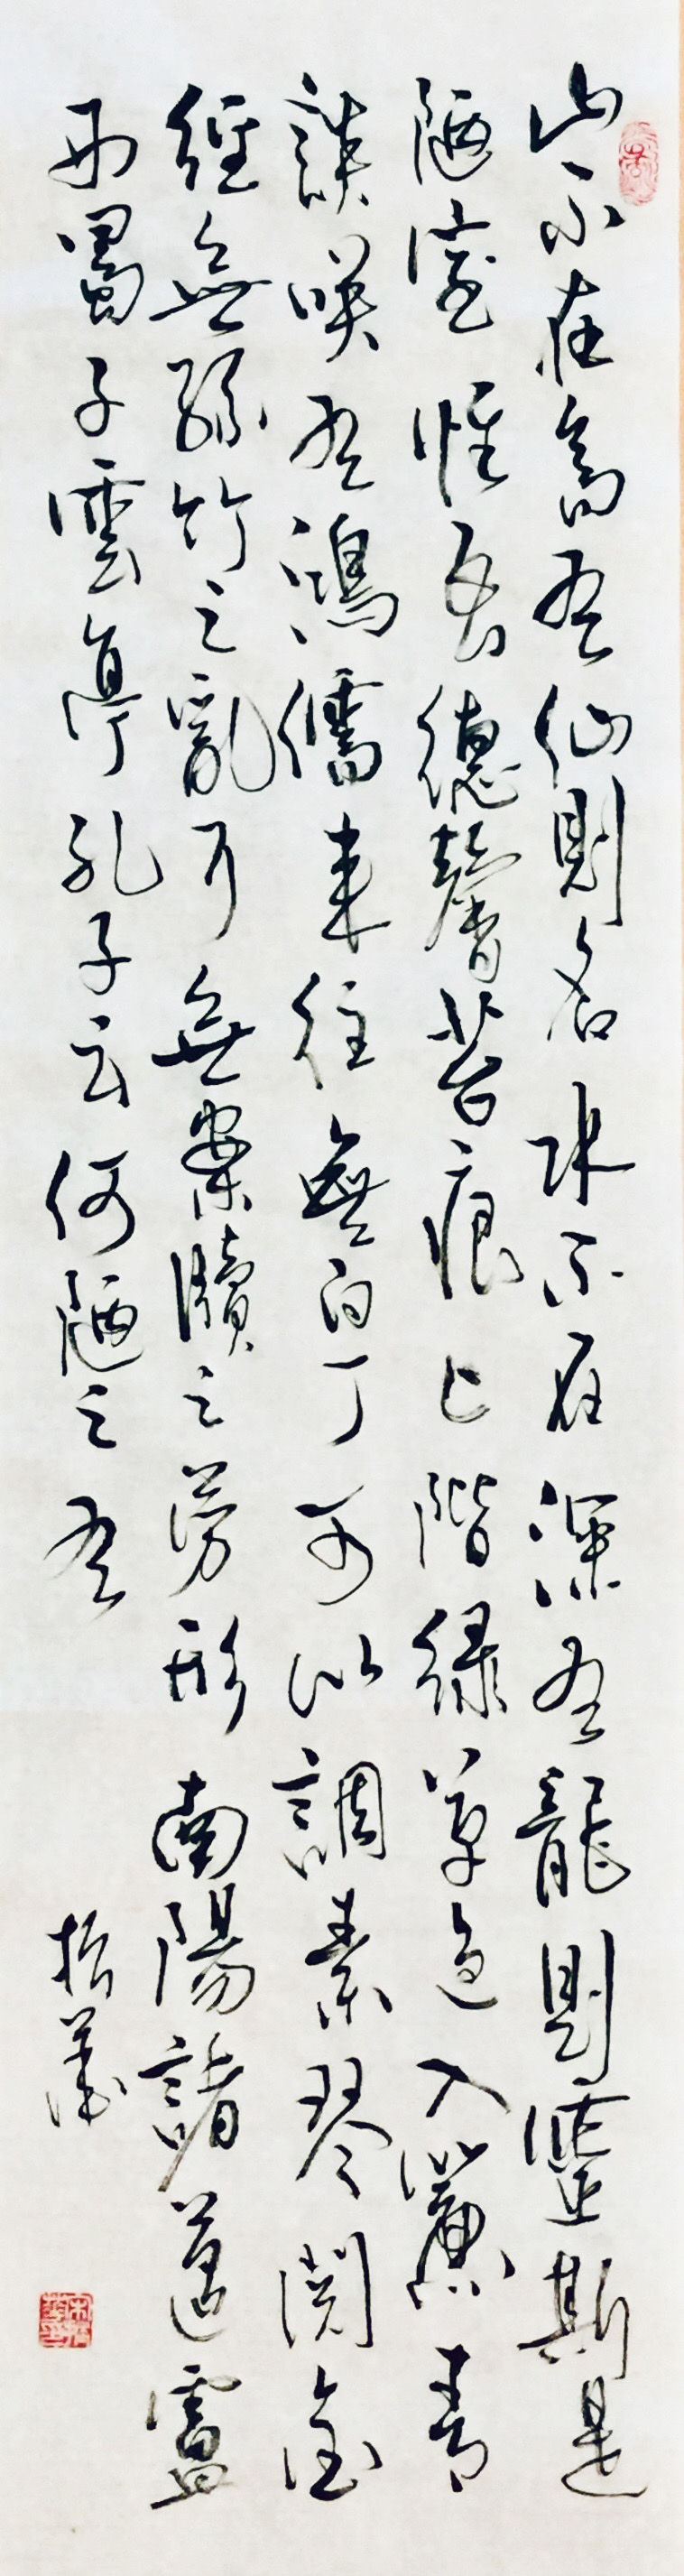 山不在高有仙則名水不在深有龍則靈斯是
陋室惟吾德馨苔痕上階綠草色入簾青
談咲有鴻儒來往無白丁可以調素琴閱金
經無絲竹之亂耳無案牘之勞形南陽諸葛廬
西蜀子雲亭孔子云何陋之有